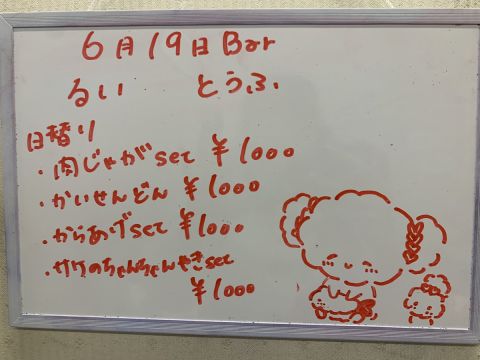 6月19日 Bar
るい とうふ
日替り
・肉じゃがset ¥1000
・かいせんどん ¥1000
・からあげset ¥1000
・サケのちゃんちゃんやきset
¥1000